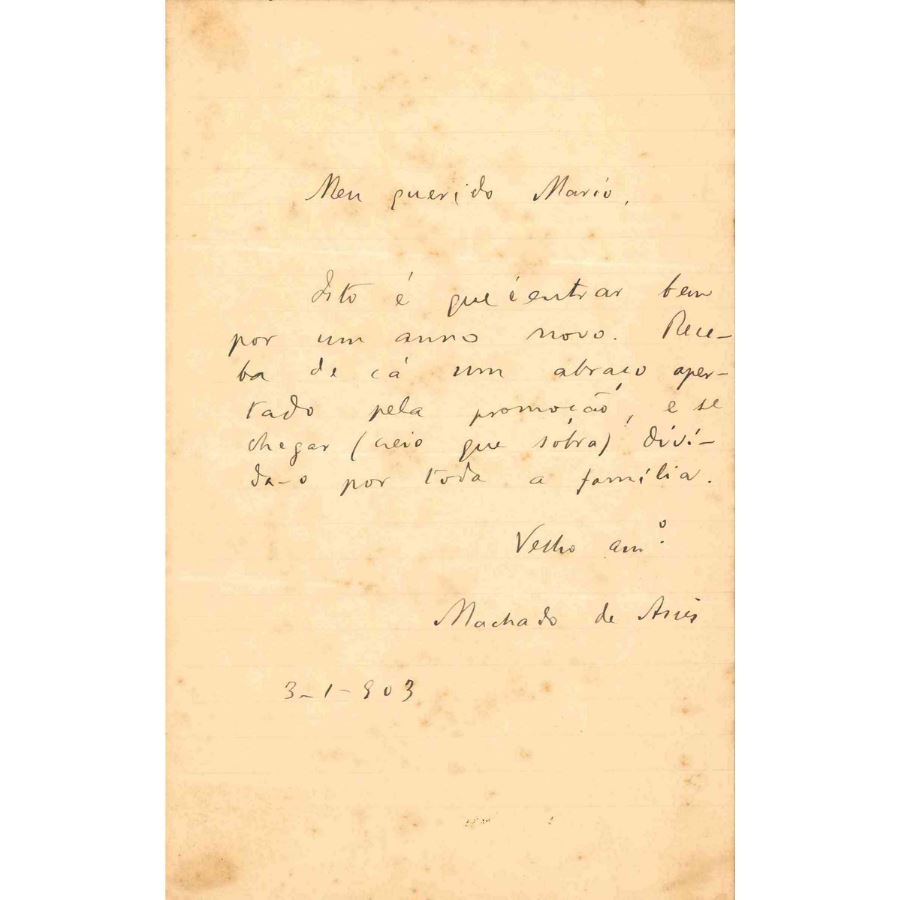 Meu querido Mario,
Isto é que é entrar bem
por um anno novo. Rece-
ba de cá um abraço aper-
tado pela promoção, e se
chegar (creio que sóbra) divi-
da-o por toda a familia.
Velho am.º
Machado de Assis
3-1-903